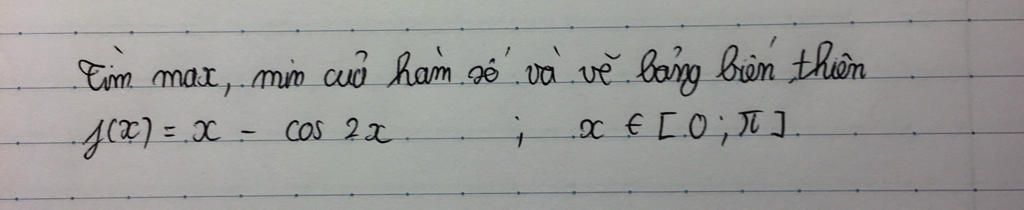 Tìm max, min cuả hàm số và vẽ bảng biến thiên
f(x) = x - cos 2x ; x ∈ [0; π]